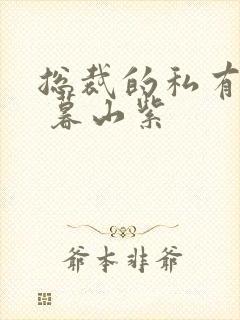 总裁的私有
暮山紫
爷本非爷